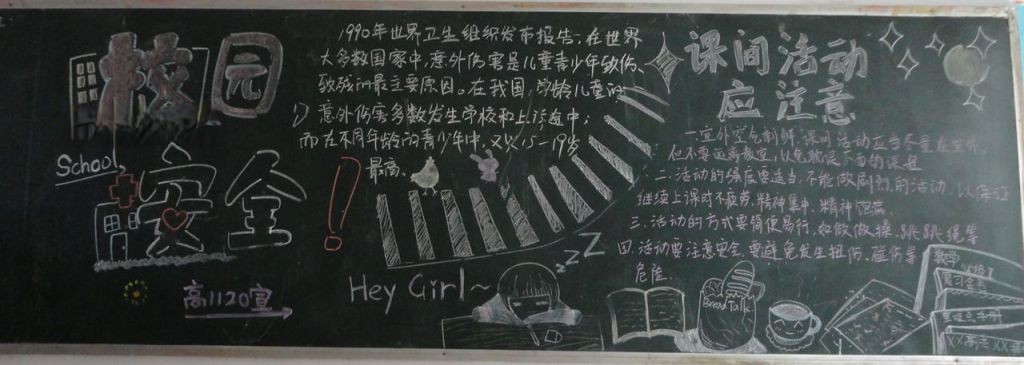 校园
School
安全
！
高1120宣
1990年世界卫生组织发布报告：在世界
大多数国家中，意外伤害是儿童青少年致伤、
致残的最主要原因。在我国，学龄儿童的
意外伤害多数发生学校和上学途中；
而在不同年龄的青少年中，又以15—19岁
最高。
Hey Girl~
ZZZ
课间活动
应注意
一.室外空气新鲜，课间活动应当尽量在室外，
但不要远离教室，以免耽误下面的课程
二.活动的强度要适当，不能做剧烈的活动，以保证
继续上课时不疲劳，精神集中，精神饱满
三.活动的方式要简便易行，如做做操、跳跳绳等
四.活动要注意安全，要避免发生扭伤、碰伤等
危险。
Bread Talk
数学